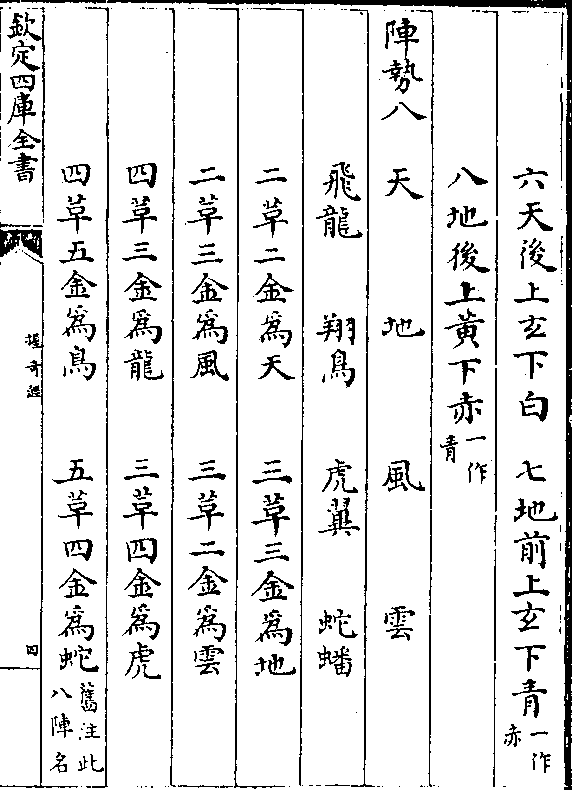 六天後上玄下白　七地前上玄下青一作赤
八地後上黄下赤一作青
陣勢八　天　地　風　雲
飛龍　翔鳥　虎翼　蛇蟠
二草二金為天　三草三金為地
二草三金為風　三草二金為雲
四草三金為龍　三草四金為虎
四草五金為鳥　五草四金為蛇舊注此八陣名
欽定四庫全書
握奇經
四